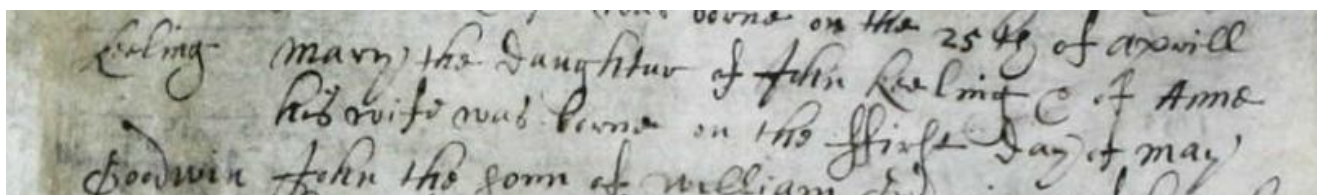 was borne on the 25th of Aprill
Keeling Mary the daughter of John Keeling & of Anne
his wife was borne on the ffirst day of may
Goodwin John the sonn of William